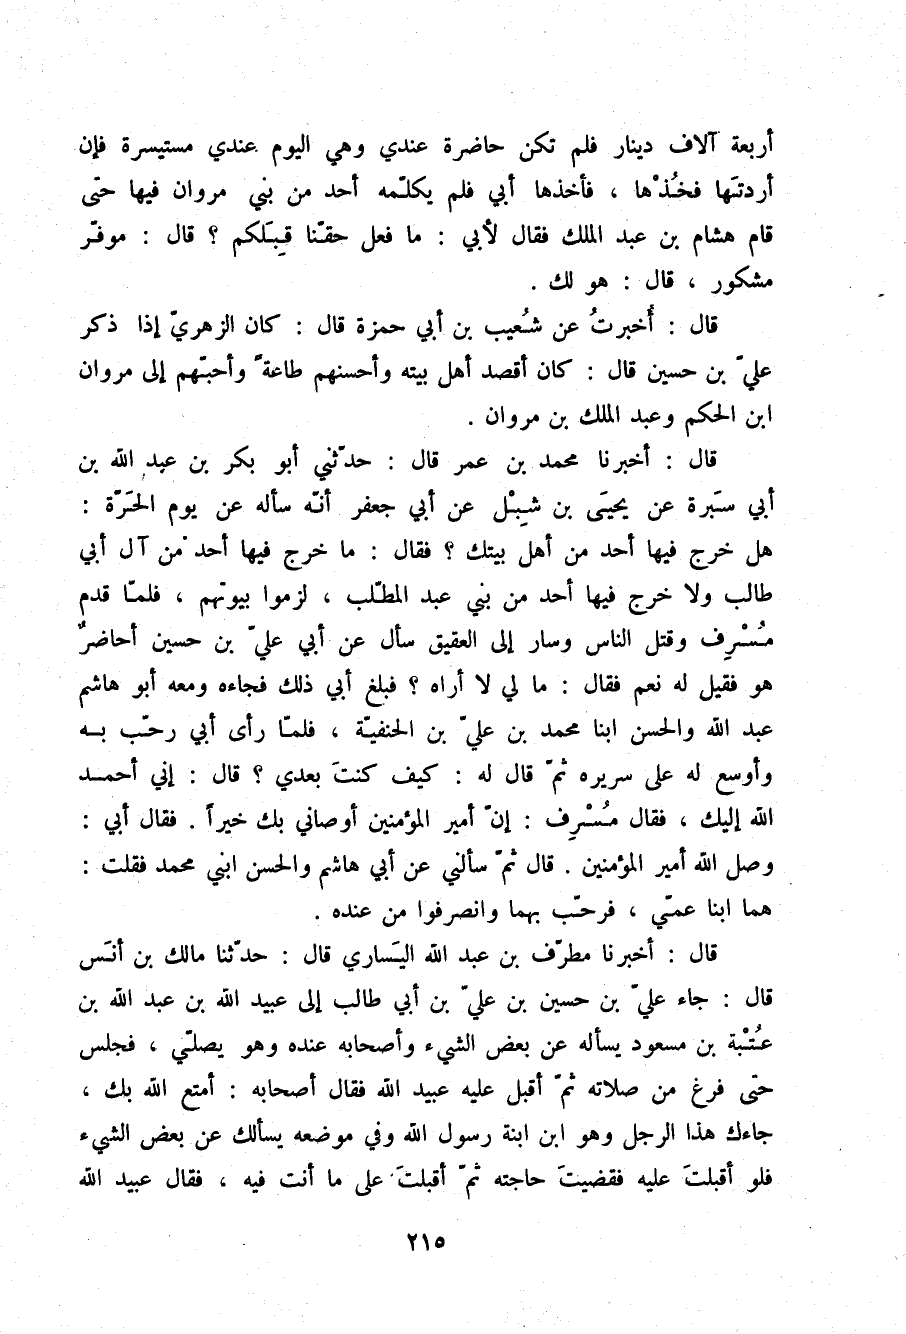 أربعة آلاف دينار فلم تكن حاضرة عندي وهي اليوم عندي مستيسرة فإن
أردتَها فخُذْها ، فأخذها أبي فلم يكلّمه أحد من بني مروان فيها حتّى
قام هشام بن عبد الملك فقال لأبي : ما فعل حقّنا قِبَلكم ؟ قال : موفّر
مشكور ، قال : هو لك .
قال : أُخبرتُ عن شُعيب بن أبي حمزة قال : كان الزهريّ إذا ذكر
عليّ بن حسين قال : كان أقصد أهل بيته وأحسنهم طاعةً وأحبّهم إلى مروان
ابن الحكم وعبد الملك بن مروان .
قال : أخبرنا محمد بن عمر قال : حدّثني أبو بكر بن عبد الله بن
أبي سَبرة عن يحيَى بن شِبْل عن أبي جعفر أنّه سأله عن يوم الحَرّة :
هل خرج فيها أحد من أهل بيتك ؟ فقال : ما خرج فيها أحد من آل أبي
طالب ولا خرج فيها أحد من بني عبد المطّلب ، لزموا بيوتهم ، فلمّا قدم
مُسْرِف وقتل الناس وسار إلى العقيق سأل عن أبي عليّ بن حسين أحاضرٌ
هو فقيل له نعم فقال : ما لي لا أراه ؟ فبلغ أبي ذلك فجاءه ومعه أبو هاشم
عبد الله والحسن ابنا محمد بن عليّ بن الحنفيّة ، فلمّا رأى أبي رحّب بـه
وأوسع له على سريره ثمّ قال له : كيف كنتَ بعدي ؟ قال : إني أحمـد
الله إليك ، فقال مُسْرِف : إنّ أمير المؤمنين أوصاني بك خيراً . فقال أبي :
وصل الله أمير المؤمنين . قال ثمّ سألني عن أبي هاشم والحسن ابني محمد فقلت :
هما ابنا عمّي ، فرحّب بهما وانصرفوا من عنده .
قال : أخبرنا مطرّف بن عبد الله اليَساري قال : حدّثنا مالك بن أنَس
قال : جاء عليّ بن حسين بن عليّ بن أبي طالب إلى عبيد الله بن عبد الله بن
عُتْبة بن مسعود يسأله عن بعض الشيء وأصحابه عنده وهو يصلّي ، فجلس
حتّى فرغ من صلاته ثمّ أقبل عليه عبيد الله فقال أصحابه : أمتع الله بك ،
جاءك هذا الرجل وهو ابن ابنة رسول الله وفي موضعه يسألك عن بعض الشيء
فلو أقبلتَ عليه فقضيتَ حاجته ثمّ أقبلتَ على ما أنت فيه ، فقال عبيد الله
٢١٥